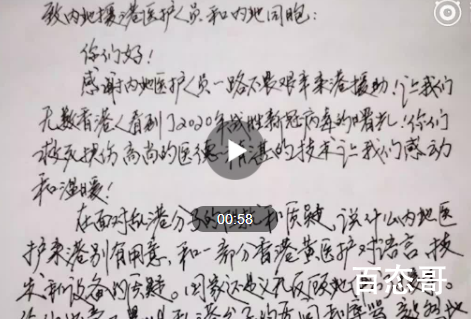 致内地援港医护人员和内地同胞：
你们好！
感谢内地医护人员一路不畏艰辛来港援助！让我们
无数香港人看到了2020年战胜新冠病毒的曙光！你们
救死扶伤高尚的医德 精湛的技术让我们感动
和温暖！
00:58
在面对乱港分子的 和质疑，说什么内地医
护来港别有用意，和一部分香港黄医护对语言、技
术和设备的质疑。国家还是义无反顾地
百态哥